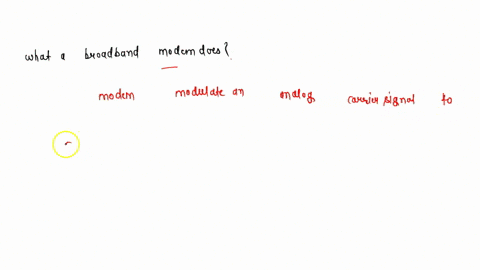 what a broadband modem does?
modem modulate an analog carrier signal to